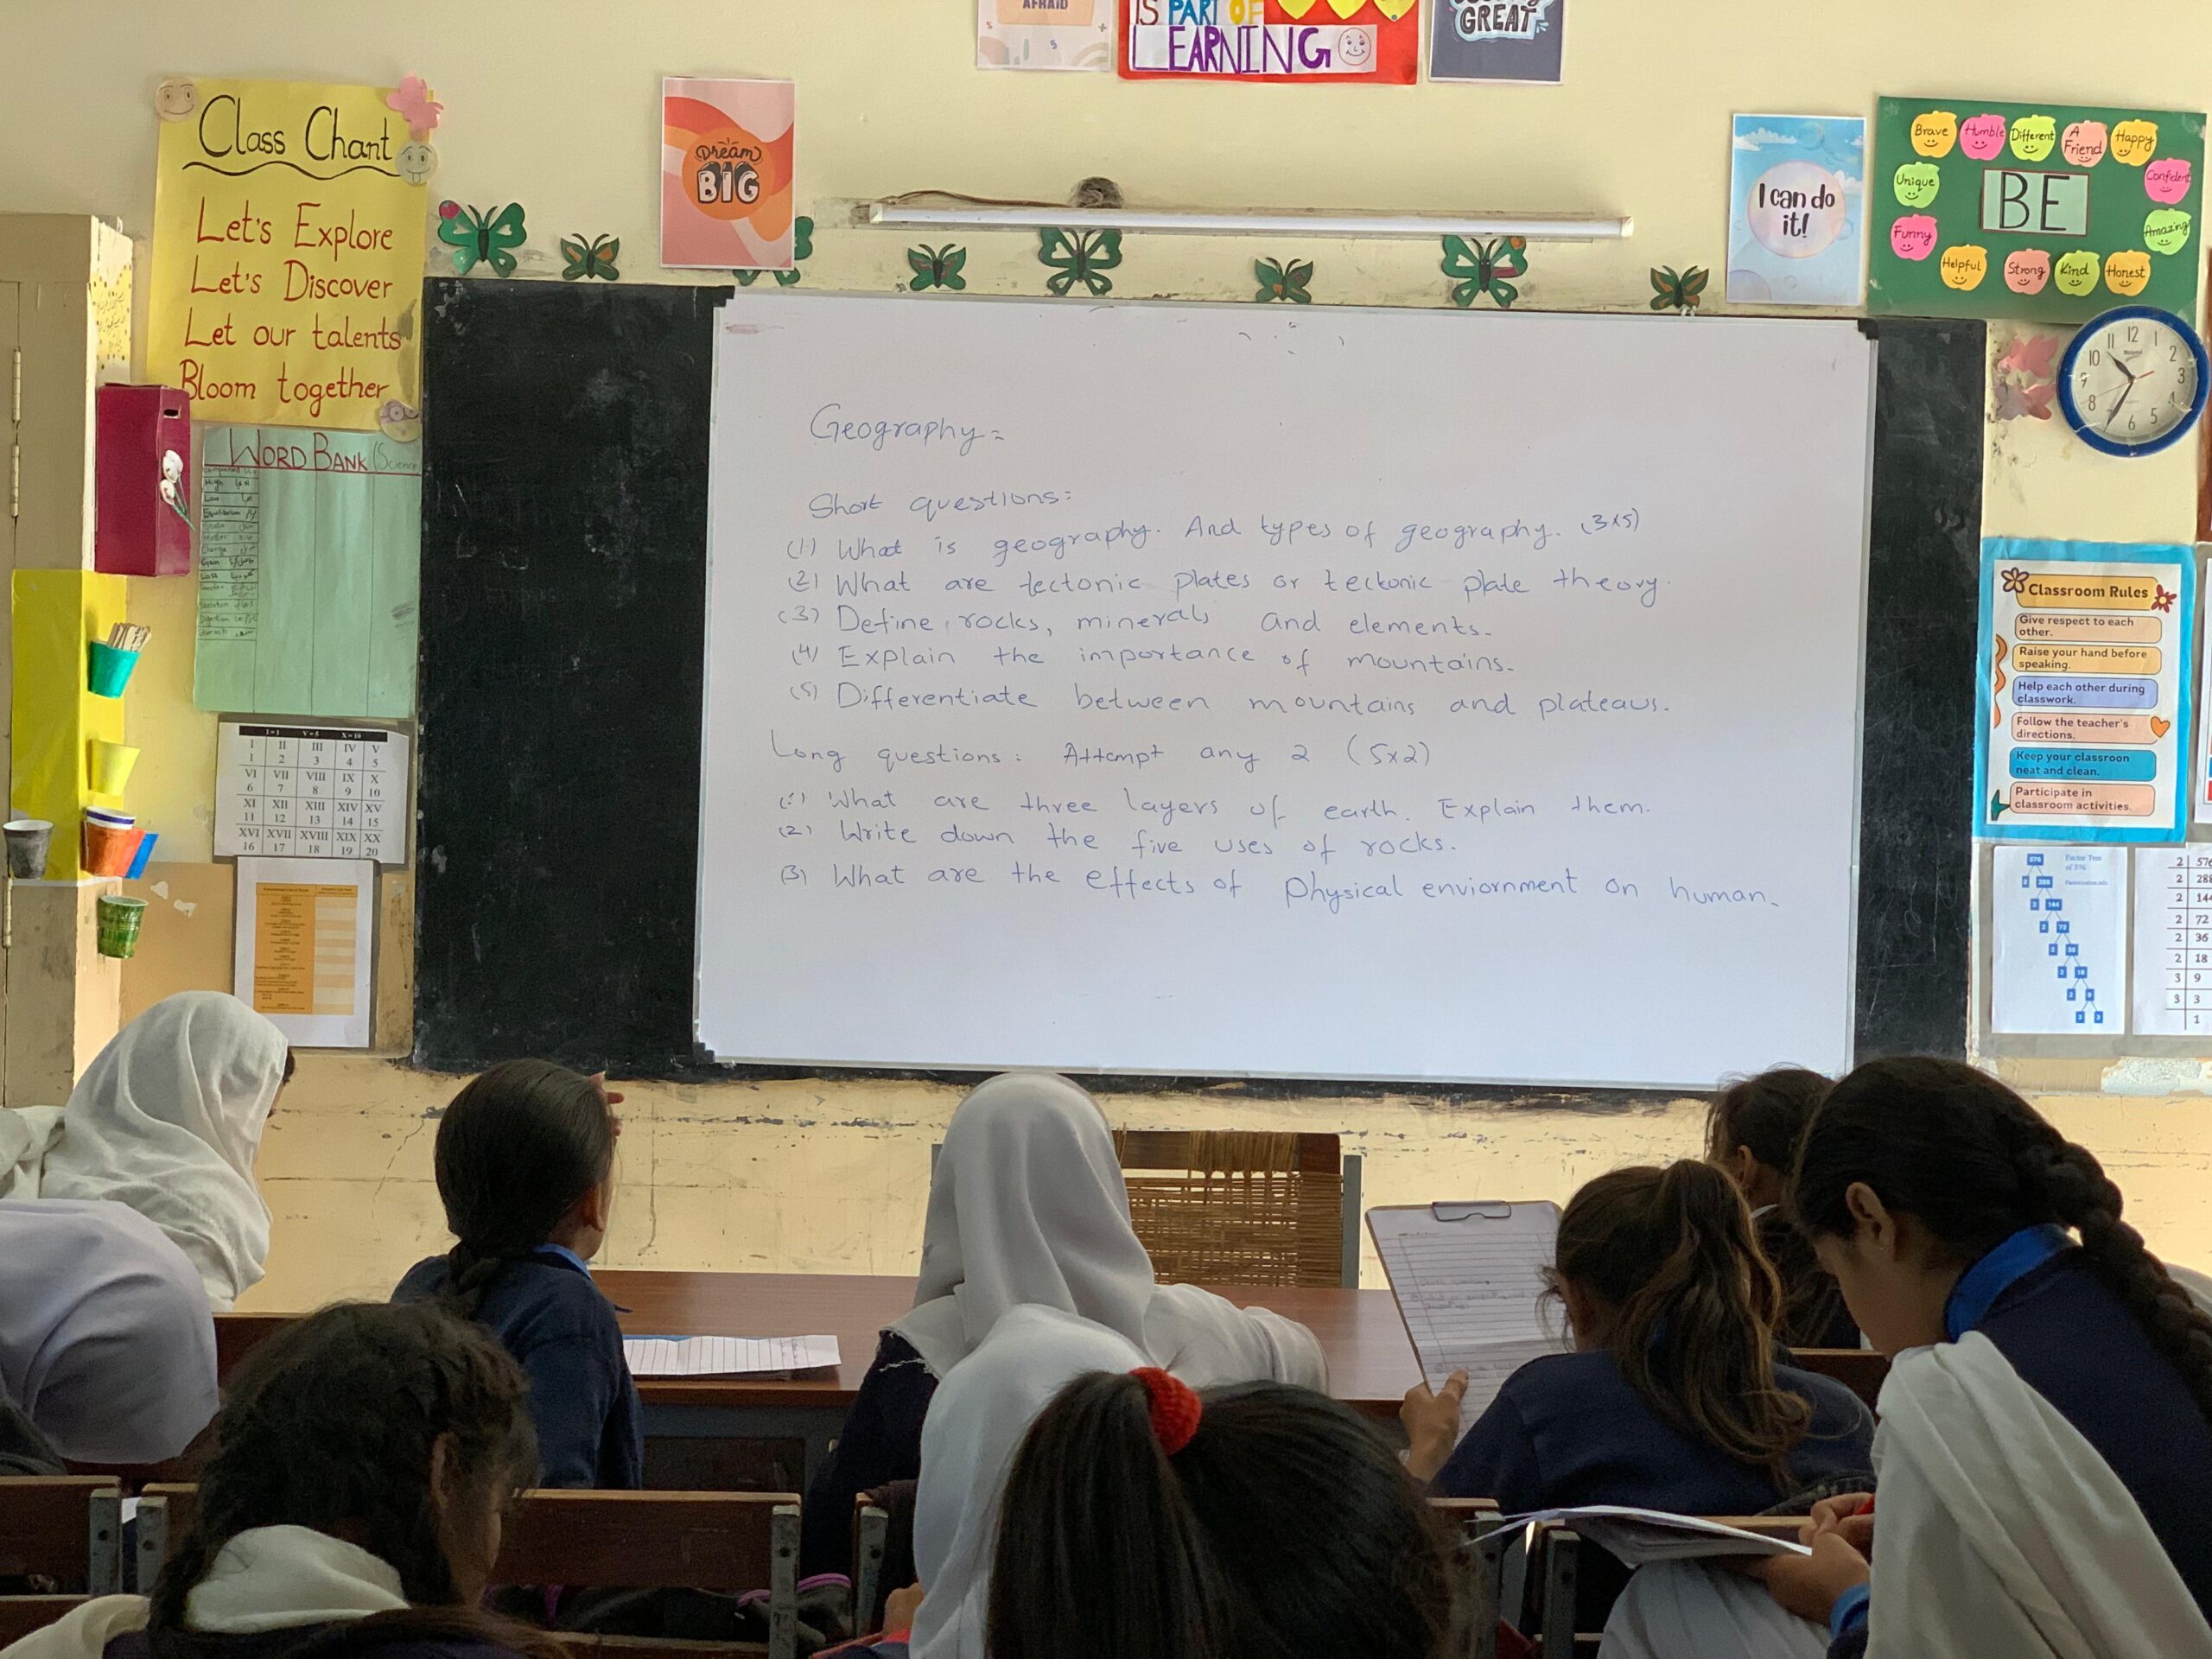 AFRAID
IS PART OF
LEARNING
GREAT
Class Chant
Let's Explore
Let's Discover
Let our talents
Bloom together
Dream
BIG
I can do
it!
Brave
Humble
Different
A
Friend
Happy
Unique
BE
Confident
Funny
Amazing
Helpful
Strong
Kind
Honest
12
11
1
10
2
9
3
8
4
7
6
5
WORD BANK (Science
High
Low
Equilibrium
Change
Gain
Loss
Skeleton
Digestion
Stomach
Geography:
Short questions:
(1) What is geography. And types of geography. (3x5)
(2) What are tectonic plates or tectonic plate theory.
(3) Define rocks, minerals and elements.
(4) Explain the importance of mountains.
(5) Differentiate between mountains and plateaus.
Long questions: Attempt any 2 (5x2)
(1) What are three layers of earth. Explain them.
(2) Write down the five uses of rocks.
(3) What are the effects of physical enviornment on human.
I=1 V=5 X=10
I II III IV V
1 2 3 4 5
VI VII VIII IX X
6 7 8 9 10
XI XII XIII XIV XV
11 12 13 14 15
XVI XVII XVIII XIX XX
16 17 18 19 20
Classroom Rules
Give respect to each
other.
Raise your hand before
speaking.
Help each other during
classwork.
Follow the teacher's
directions.
Keep your classroon
neat and clean.
Participate in
classroom activities.
Factor Tree
of 576
576
2 288
2 144
2 72
2 36
2 18
2 9
3 3
2 576
2 288
2 144
2 72
2 36
2 18
3 9
3 3
1